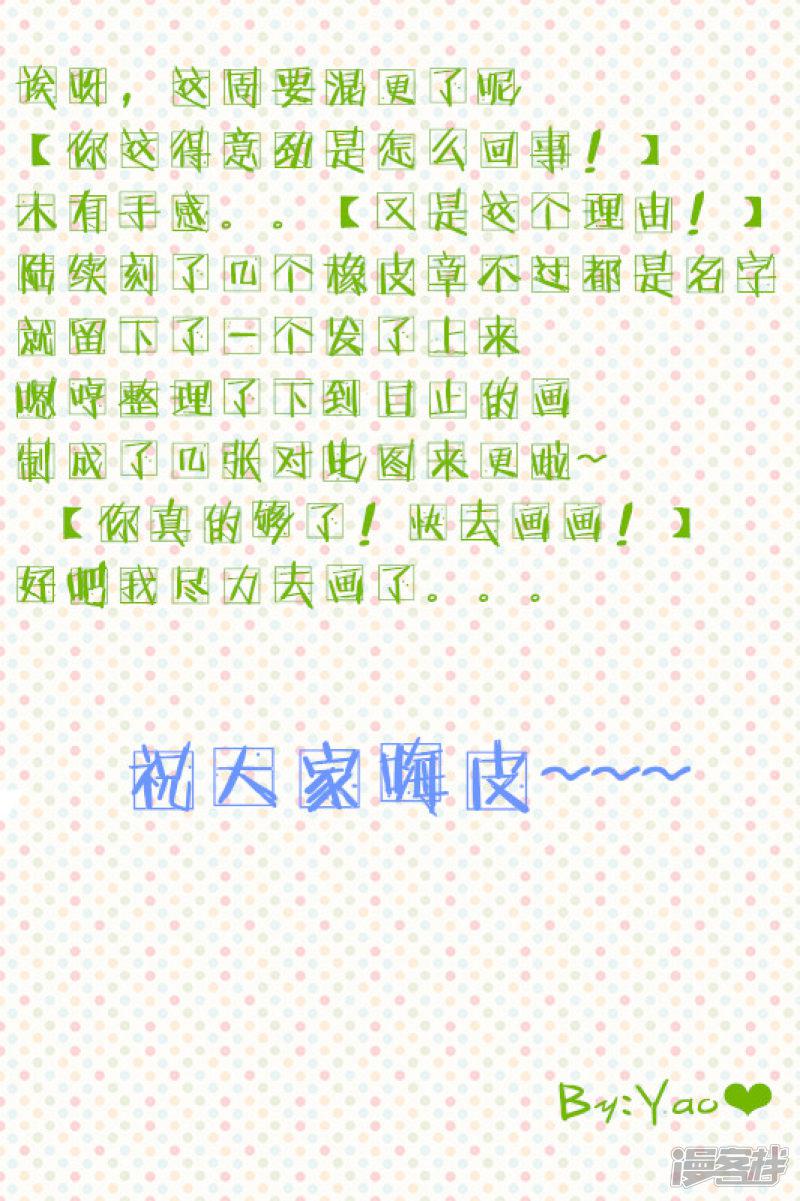 挨呀，这周要混更了呢
【你这得意劲是怎么回事！】
木有手感。。【又是这个理由！】
陆续刻了几个橡皮章不过都是名字
就留下了一个发了上来
嗯哼整理了下到目止的画
制成了几张对比图来更啦~
【你真的够了！快去画画！】
好吧我尽力去画了。。。
祝大家嗨皮~~~
By:Yao❤
漫客栈